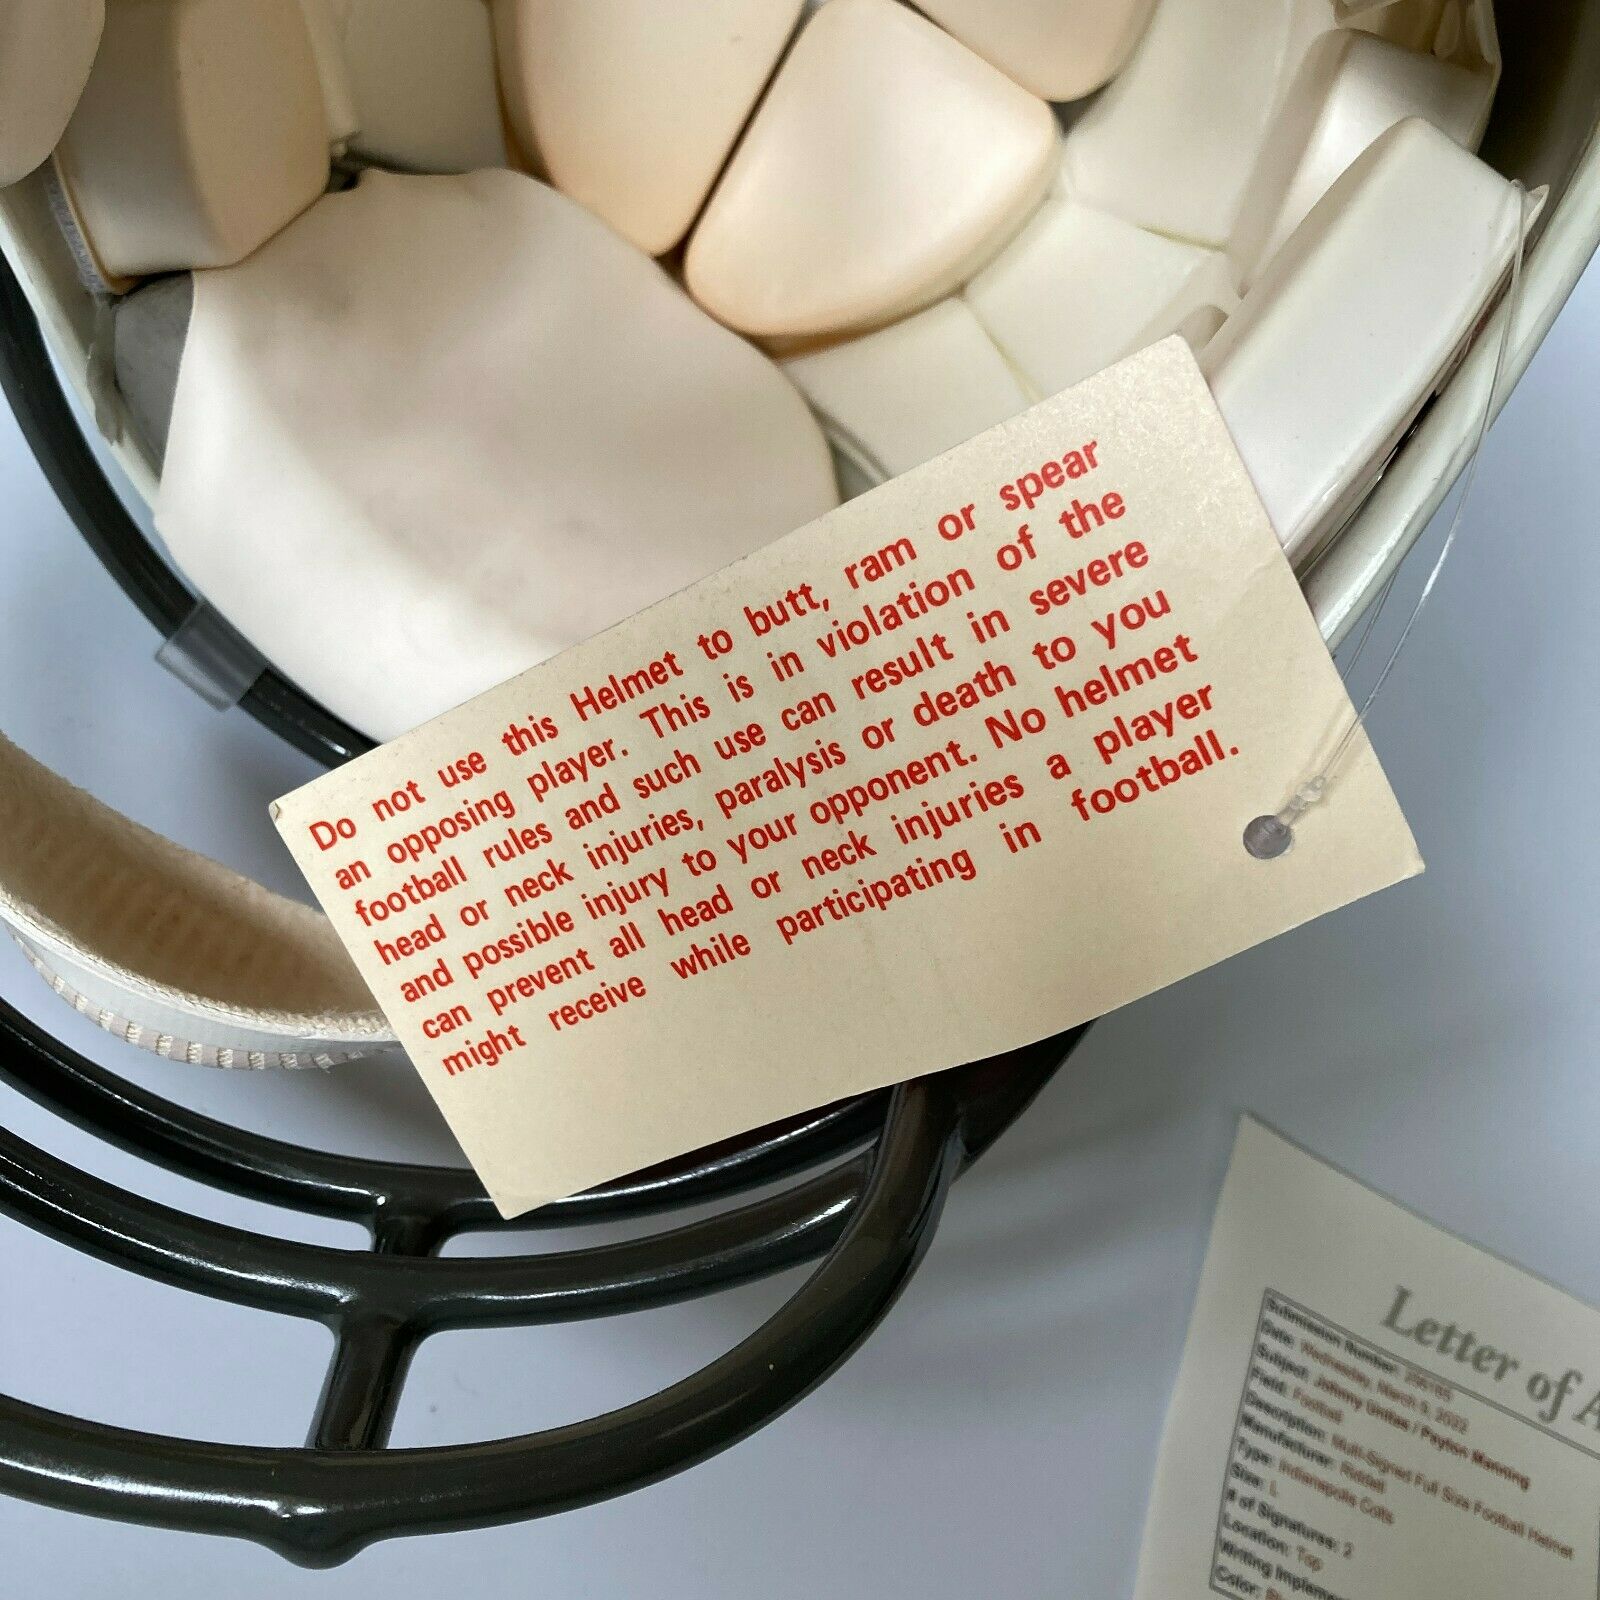 Do not use this Helmet to butt, ram or spear
an opposing player. This is in violation of the
football rules and such use can result in severe
head or neck injuries, paralysis or death to you
and possible injury to your opponent. No helmet
can prevent all head or neck injuries a player
might receive while participating in football.
Letter of A
Submission Number:
Date: Wednesday, March 9, 2022
Subject: Johnny Unitas / Peyton Manning
Field: Football
Description: Multi-Signed Full Size Football Helmet
Manufacturer: Riddell
Type: Indianapolis Colts
Size: L
# of Signatures: 2
Location: Top
Writing Implem
Color: